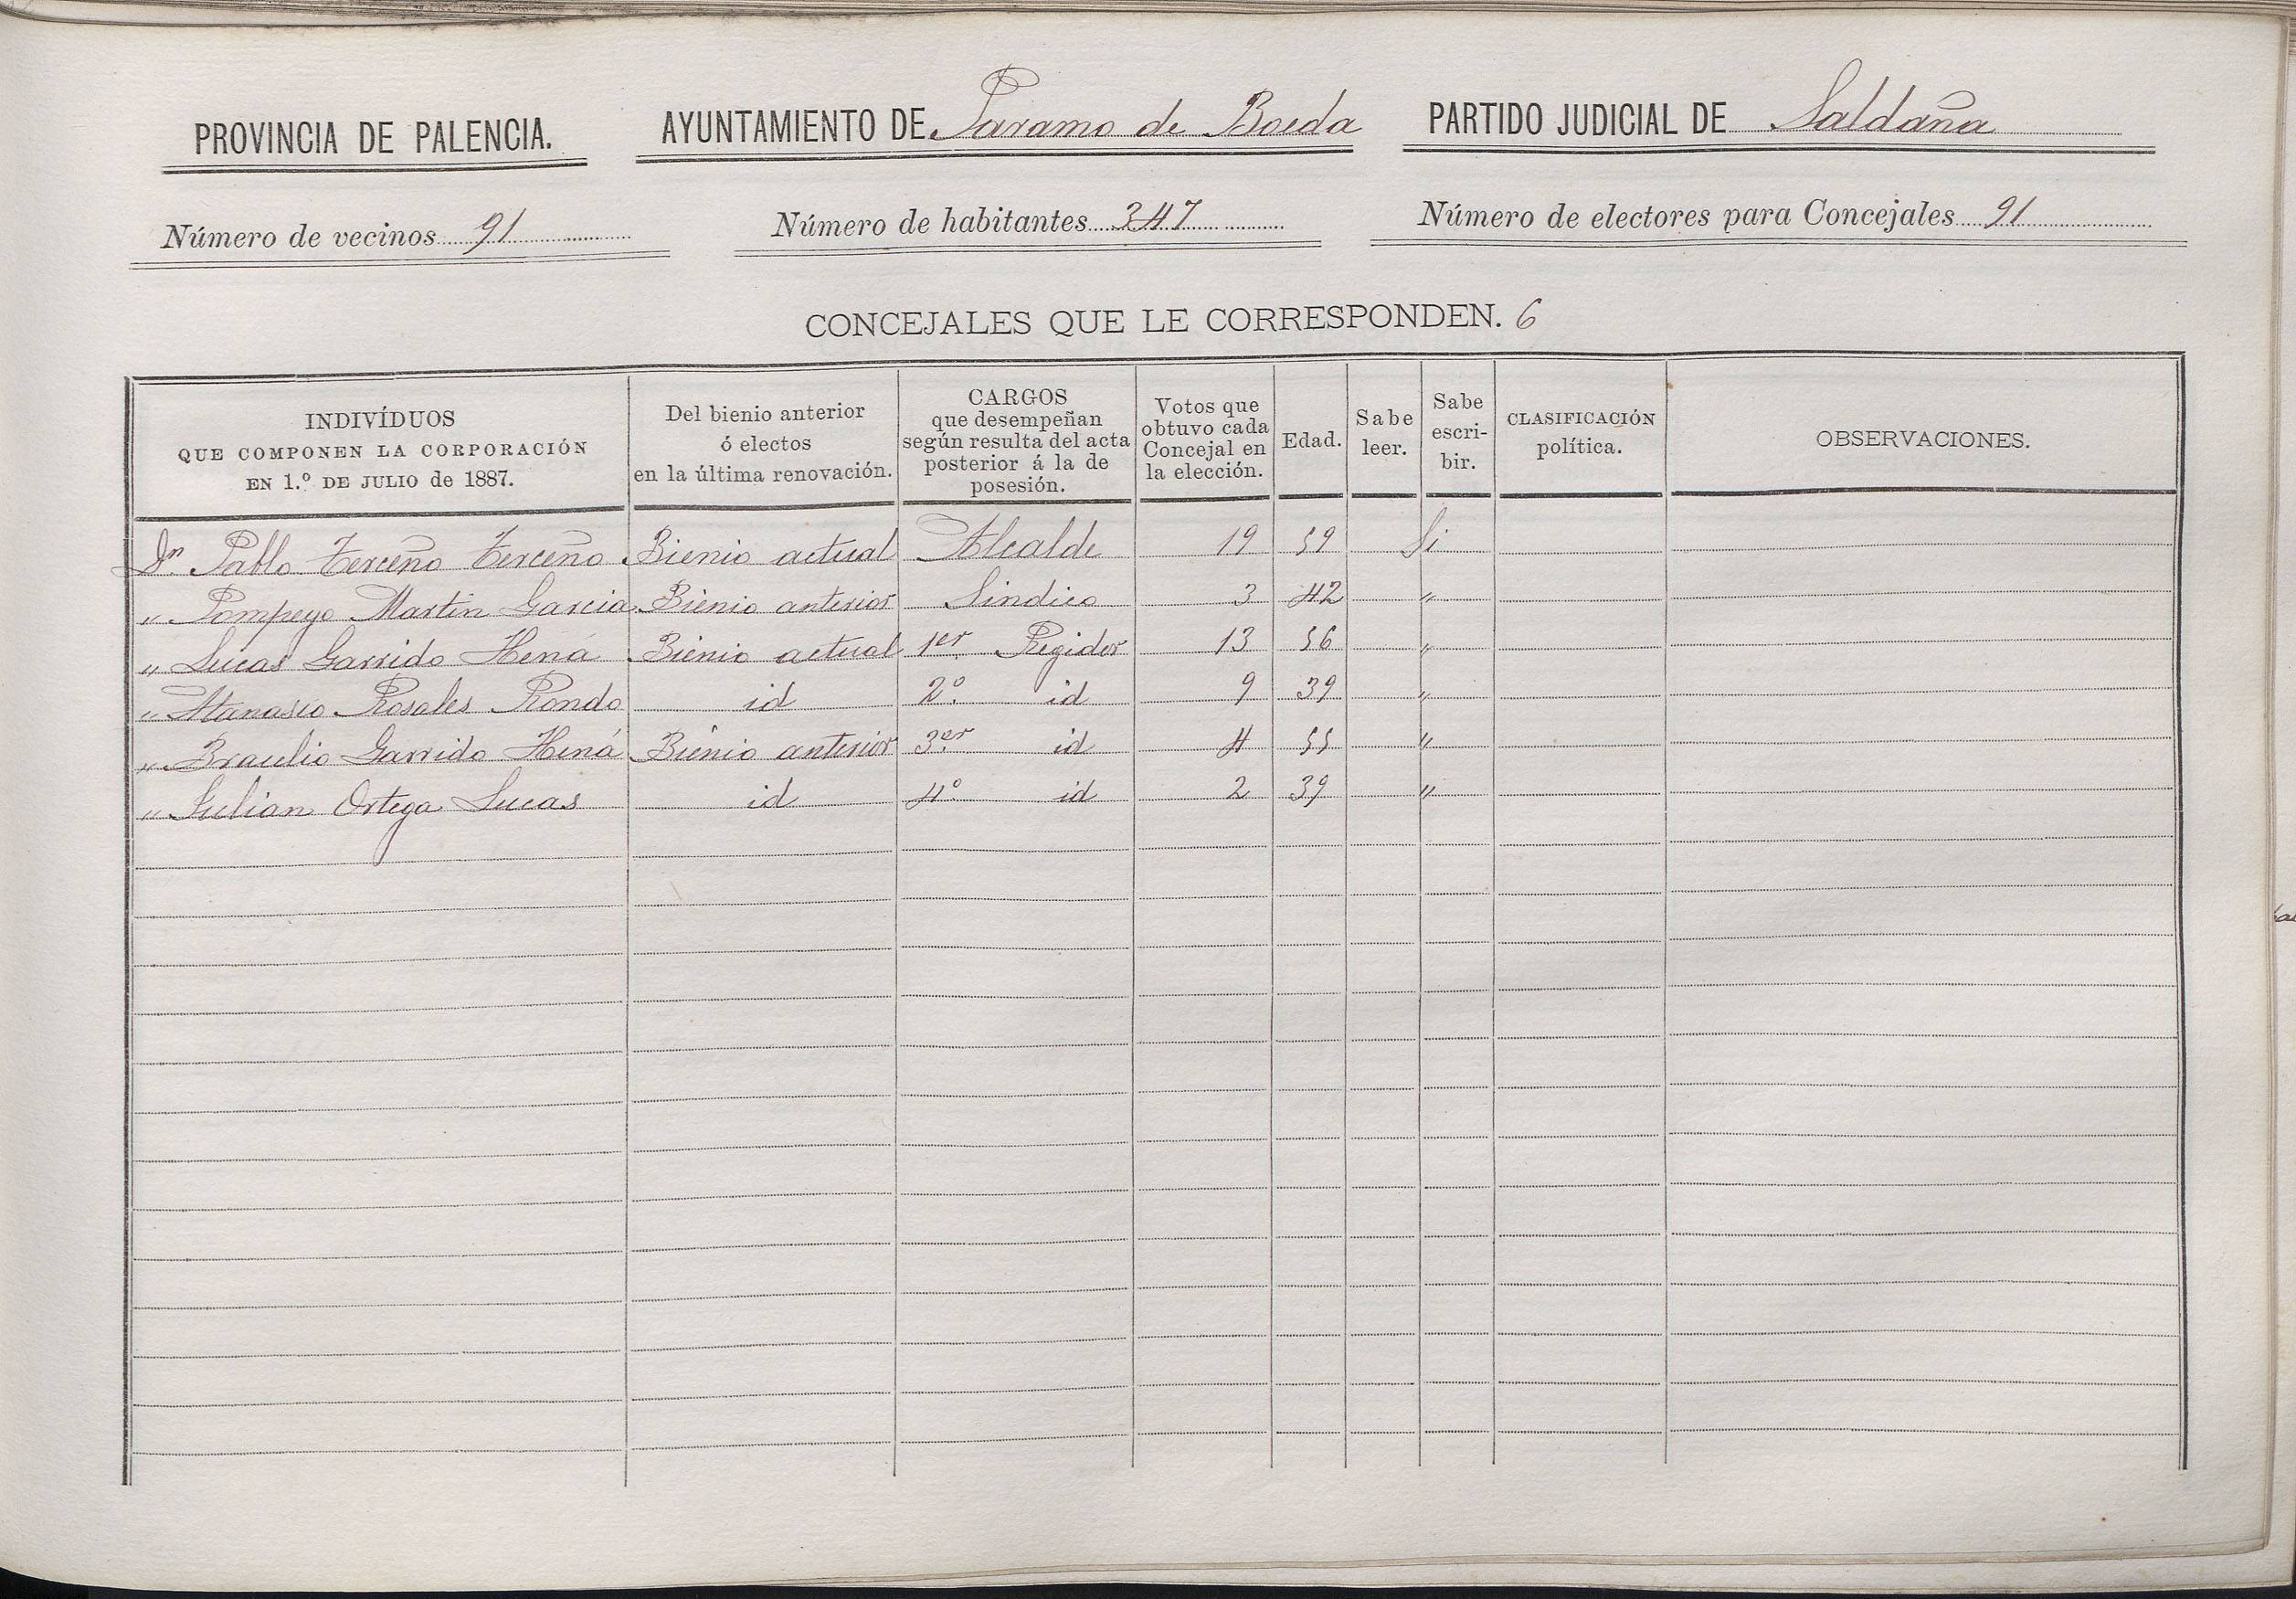 PROVINCIA DE PALENCIA. AYUNTAMIENTO DE Paramo de Boeda PARTIDO JUDICIAL DE Saldaña
Número de vecinos 91 Número de habitantes 347 Número de electores para Concejales 91
CONCEJALES QUE LE CORRESPONDEN. 6
INDIVÍDUOS
QUE COMPONEN LA CORPORACIÓN
EN 1.º DE JULIO de 1887.
Del bienio anterior
ó electos
en la última renovación.
CARGOS
que desempeñan
según resulta del acta
posterior á la de
posesión.
Votos que
obtuvo cada
Concejal en
la elección.
Edad.
Sabe
leer.
Sabe
escri-
bir.
CLASIFICACIÓN
política.
OBSERVACIONES.
Dn Pablo Terceño Terceño Bienio actual Alcalde 19 59 Si
" Pompeyo Martin Garcia Bienio anterior Sindico 3 42 "
" Lucas Garrido Hená Bienio actual 1er Regidor 13 56 "
" Atanasio Rosales Rondo id 2º id 9 39 "
" Braulio Garrido Hená Bienio anterior 3er id 4 55 "
" Julian Ortega Lucas id 4º id 2 39 "